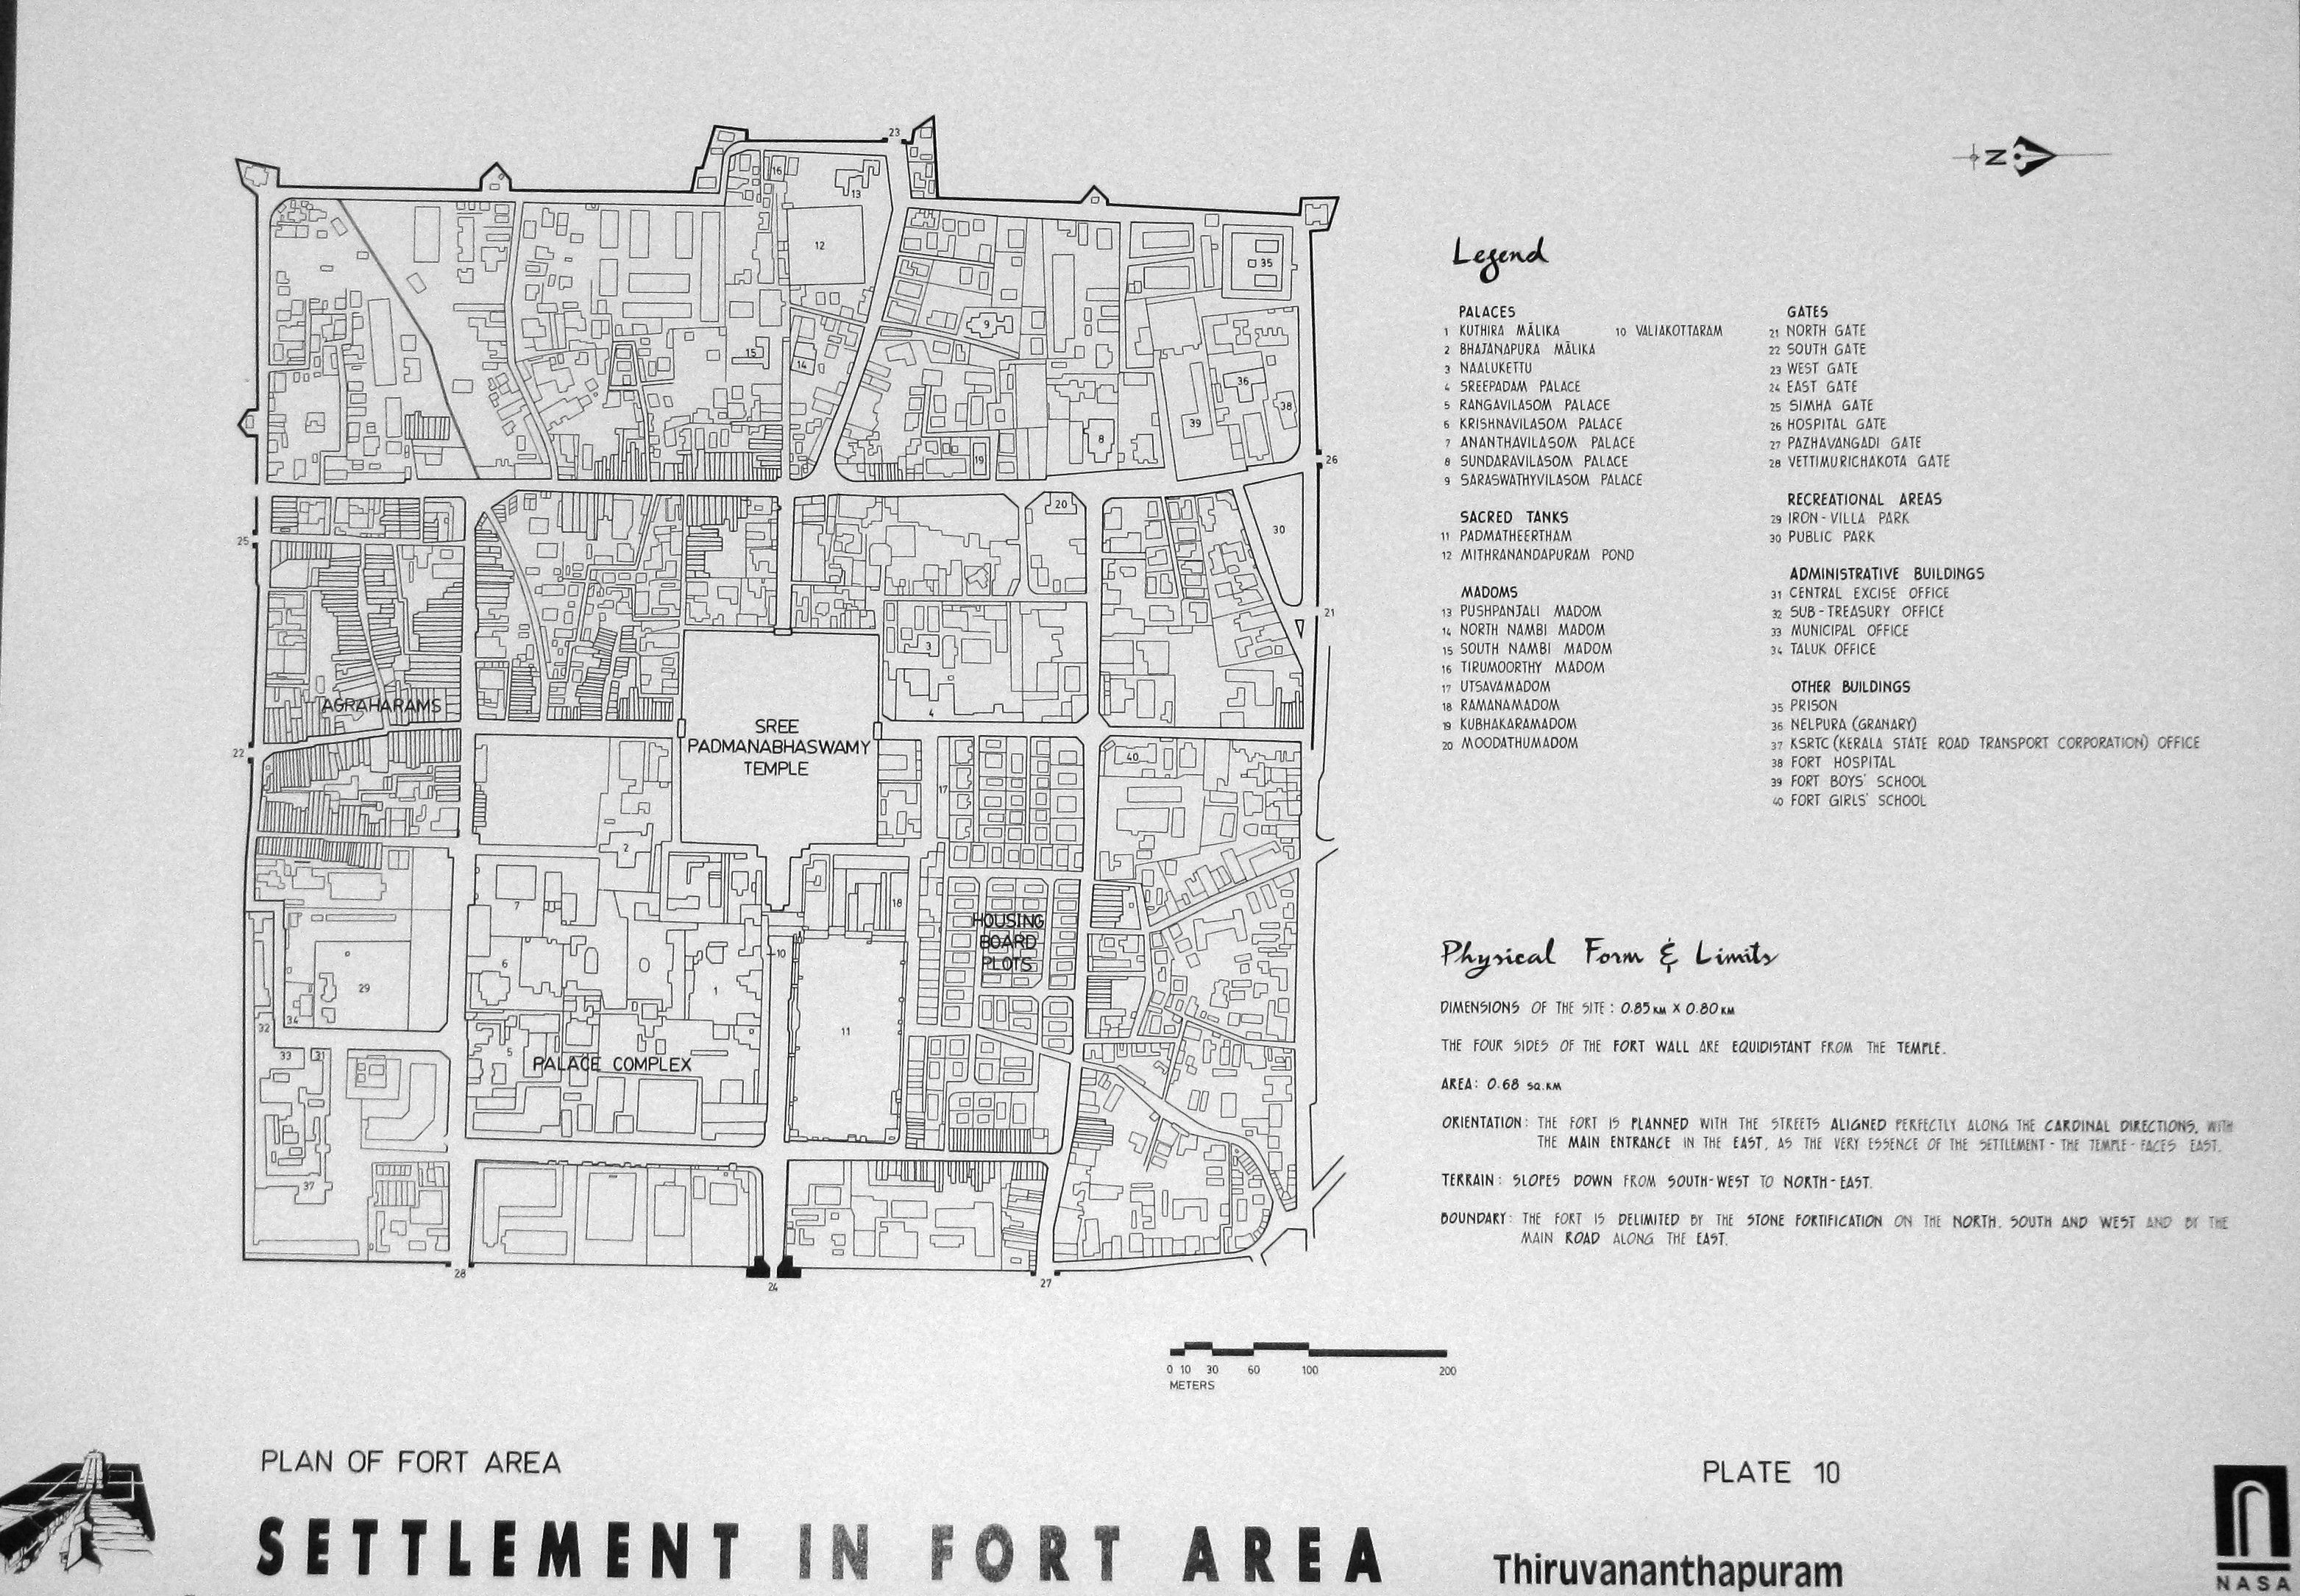 23
16
13
12
N
Legend
35
PALACES
1 KUTHIRA MĀLIKA
10 VALIAKOTTARAM
2 BHAJANAPURA MĀLIKA
3 NAALUKETTU
4 SREEPADAM PALACE
5 RANGAVILASOM PALACE
6 KRISHNAVILASOM PALACE
7 ANANTHAVILASOM PALACE
8 SUNDARAVILASOM PALACE
9 SARASWATHYVILASOM PALACE
SACRED TANKS
11 PADMATHEERTHAM
12 MITHRANANDAPURAM POND
MADOMS
13 PUSHPANJALI MADOM
14 NORTH NAMBI MADOM
15 SOUTH NAMBI MADOM
16 TIRUMOORTHY MADOM
17 UTSAVAMADOM
18 RAMANAMADOM
19 KUBHAKARAMADOM
20 MOODATHUMADOM
GATES
21 NORTH GATE
22 SOUTH GATE
23 WEST GATE
24 EAST GATE
25 SIMHA GATE
26 HOSPITAL GATE
27 PAZHAVANGADI GATE
28 VETTIMURICHAKOTA GATE
RECREATIONAL AREAS
29 IRON-VILLA PARK
30 PUBLIC PARK
ADMINISTRATIVE BUILDINGS
31 CENTRAL EXCISE OFFICE
32 SUB-TREASURY OFFICE
33 MUNICIPAL OFFICE
34 TALUK OFFICE
OTHER BUILDINGS
35 PRISON
36 NELPURA (GRANARY)
37 KSRTC (KERALA STATE ROAD TRANSPORT CORPORATION) OFFICE
38 FORT HOSPITAL
39 FORT BOYS' SCHOOL
40 FORT GIRLS' SCHOOL
9
15
14
36
38
39
8
19
26
20
30
25
21
3
4
AGRAHARAMS
SREE
PADMANABHASWAMY
TEMPLE
22
40
17
2
7
18
HOUSING
BOARD
PLOTS
10
6
1
29
34
32
11
33
31
5
PALACE COMPLEX
37
28
24
27
Physical Form & Limits
DIMENSIONS OF THE SITE : 0.85 KM X 0.80 KM
THE FOUR SIDES OF THE FORT WALL ARE EQUIDISTANT FROM THE TEMPLE.
AREA: 0.68 SQ.KM
ORIENTATION: THE FORT IS PLANNED WITH THE STREETS ALIGNED PERFECTLY ALONG THE CARDINAL DIRECTIONS, WITH
THE MAIN ENTRANCE IN THE EAST, AS THE VERY ESSENCE OF THE SETTLEMENT - THE TEMPLE - FACES EAST.
TERRAIN: SLOPES DOWN FROM SOUTH-WEST TO NORTH-EAST.
BOUNDARY: THE FORT IS DELIMITED BY THE STONE FORTIFICATION ON THE NORTH, SOUTH AND WEST AND BY THE
MAIN ROAD ALONG THE EAST.
0 10 30 60 100 200
METERS
PLAN OF FORT AREA
PLATE 10
SETTLEMENT IN FORT AREA
Thiruvananthapuram
NASA